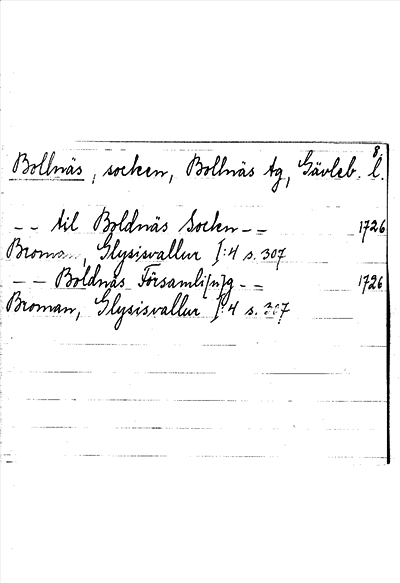 8.
Bollnäs, socken, Bollnäs tg, Gävleb. l.
-- til Boldnäs Socken -- 1726
Broman, Glysisvallur I:4 s. 307
-- Boldnäs Församli[n]g -- 1726
Broman, Glysisvallur I:4 s. 367